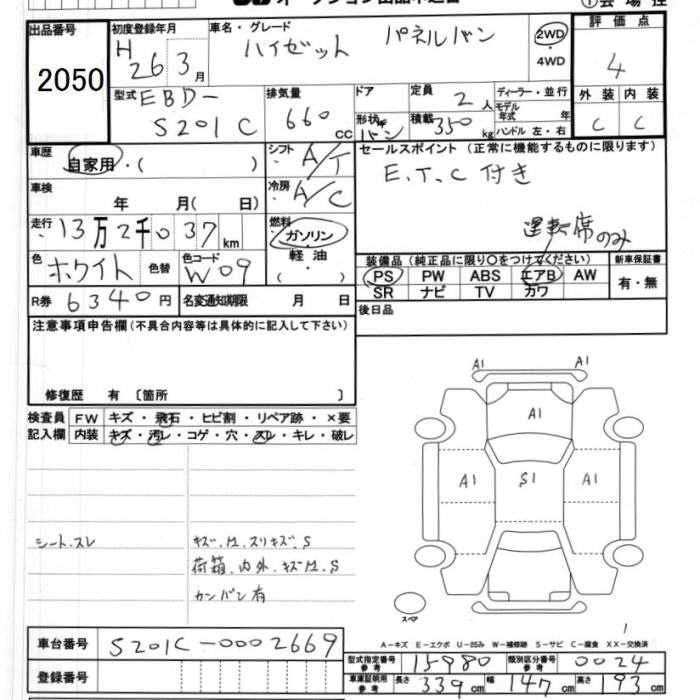 オークション出品申込書
会場控
出品番号
2050
初度登録年月
H 26 3月
車名・グレード
ハイゼット パネルバン
2WD
・
4WD
評価点
4
型式 EBD-
S201C
排気量
660
CC
ドア
形状 バン
定員 2人
積載 350 kg
ディーラー・並行
モデル
年式 年
ハンドル 左・右
外装 内装
C C
車歴
自家用・( )
シフト A/T
セールスポイント (正常に機能するものに限ります)
E.T.C 付き
車検
年 月( 日)
冷房 A/C
走行 13万2千037 km
燃料
ガソリン
軽油
( ・ )
運転席のみ
色 ホワイト 色替
色コード W09
装備品 (純正品に限り〇をつけてください)
新車保証書
PS PW ABS エアB AW
SR ナビ TV カワ
有・無
R券 6340円
名変通知期限 月 日
後日品
注意事項申告欄(不具合内容等は具体的に記入して下さい)
修復歴 有 〔箇所 〕
検査員
記入欄
FW キズ・飛石・ヒビ割・リペア跡・×要
内装 キズ・汚レ・コゲ・穴・スレ・キレ・破レ
A1 A1
A1
A1 S1 A1
シート、スレ
キズ、M、スリキズ、S
荷箱、内外、キズM、S
カンバン有
スペア
A-キズ E-エクボ U-凹み W-補修跡 S-サビ C-腐食 XX-交換済
車台番号 S201C-0002669
登録番号
型式指定番号
参考
15980
類別区分番号
参考
0024
車庫証明用
参考
長さ 339 cm 幅 147 cm 高さ 193 cm